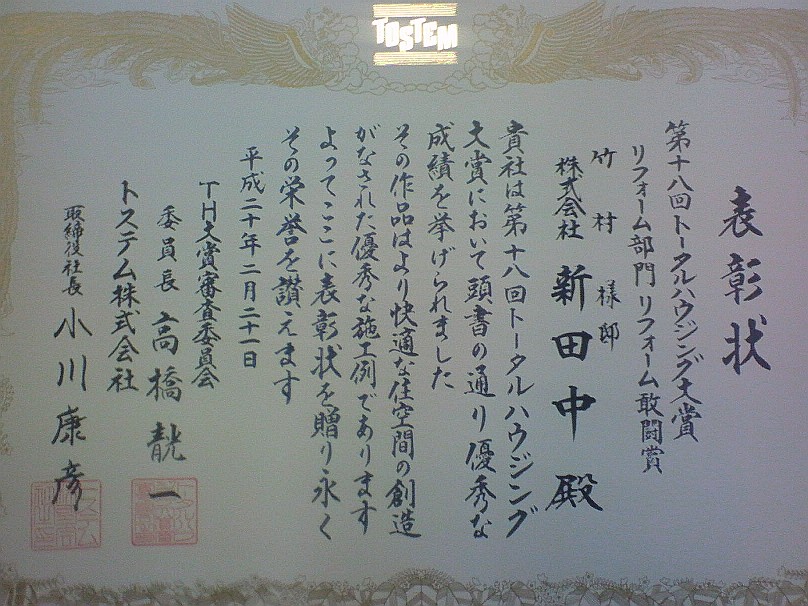 TOSTEM
表彰状
第十八回トータルハウジング大賞
リフォーム部門 リフォーム敢闘賞
竹村様邸
株式会社 新田中殿
貴社は第十八回トータルハウジング
大賞において頭書の通り優秀な
成績を挙げられました
その作品はより快適な住空間の創造
がなされた優秀な施工例であります
よってここに表彰状を贈り永く
その栄誉を讃えます
平成二十年二月二十一日
TH大賞審査委員会
委員長 高橋 一
トステム株式会社
取締役社長 小川康彦